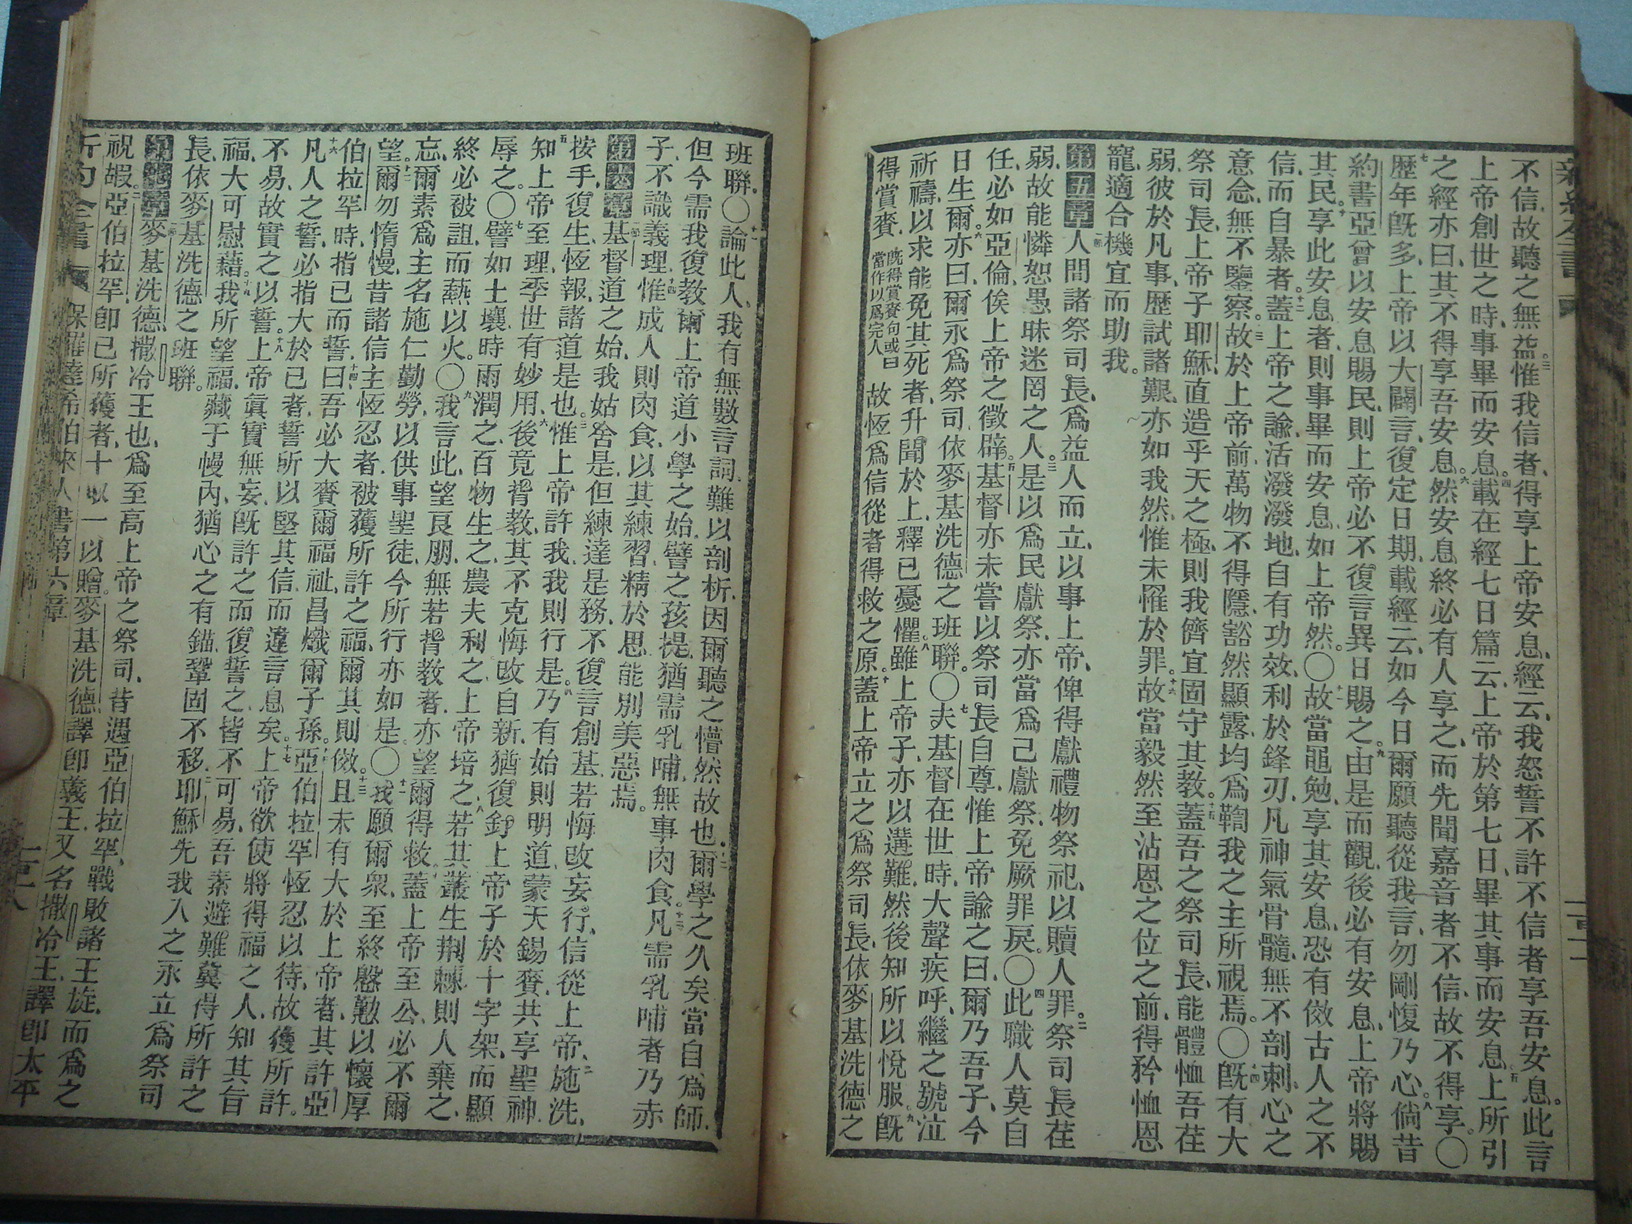 不信故聽之無益三惟我信者得享上帝安息經云我怒誓不許不信者享吾安息此言
上帝創世之時事畢而安息四載在經七日篇云上帝於第七日畢其事而安息五上所引
之經亦曰其不得享吾安息六然安息終必有人享之而先聞嘉音者不信故不得享〇
七歷年旣多上帝以大闢言復定日期載經云如今日爾願聽從我言勿剛愎乃心八倘昔
約書亞曾以安息賜民則上帝必不復言異日賜之九由是而觀後必有安息上帝將賜
其民十享此安息者則事畢而安息如上帝然〇十一故當黽勉享其安息恐有傚古人之不
信而自暴者十二蓋上帝之諭活潑潑地自有功效利於鋒刃凡神氣骨髓無不剖刺心之
意念無不鑒察十三故於上帝前萬物不得隱豁然顯露均爲鞫我之主所視焉〇十四旣有大
祭司長上帝子耶穌直造乎天之極則我儕宜固守其教十五蓋吾之祭司長能體恤吾荏
弱彼於凡事歷試諸艱亦如我然惟未罹於罪十六故當毅然至沾恩之位之前得矜恤恩
寵適合機宜而助我
第五章一人間諸祭司長爲益人而立以事上帝俾得獻禮物祭祀以贖人罪二祭司長荏
弱故能憐恕愚昧迷罔之人三是以爲民獻祭亦當爲己獻祭免厥罪戾〇四此職人莫自
任必如亞倫俟上帝之徵辟五基督亦未嘗以祭司長自尊惟上帝諭之曰爾乃吾子今
日生爾六亦曰爾永爲祭司依麥基洗德之班聯〇七夫基督在世時大聲疾呼繼之號泣
祈禱以求能免其死者升聞於上釋已憂懼八雖上帝子亦以遘難然後知所以悅服九旣
得賞賚旣得賞賚句或曰當作以爲完人故恆爲信從者得救之原十蓋上帝立之爲祭司長依麥基洗德之
班聯〇十一論此人我有無數言詞難以剖析因爾聽之懵然故也十二爾學之久矣當自爲師
但今需我復教爾上帝道小學之始譬之孩提猶需乳哺無事肉食十三凡需乳哺者乃赤
子不識義理十四惟成人則肉食以其練習精於思能別美惡焉
第六章一基督道之始我姑舍是但練達是務不復言創基若悔改妄行信從上帝二施洗
按手復生恆報諸道是也三惟上帝許我我則行是四乃有始則明道蒙天錫賚共享聖神
五知上帝至理季世有妙用六後竟背教其不克悔改自新猶復釘上帝子於十字架而顯
辱之〇七譬如土壤時雨潤之百物生之農夫利之上帝培之八若其叢生荆棘則人棄之
終必被詛而爇以火〇九我言此望良朋無若背教者亦望爾得救十蓋上帝至公必不爾
忘爾素爲主名施仁勤勞以供事聖徒今所行亦如是〇十一我願爾衆至終慇懃以懷厚
望十二爾勿惰慢昔諸信主恆忍者被獲所許之福爾其則傚十三且未有大於上帝者其許亞
伯拉罕時指已而誓曰十四吾必大賚爾福祉昌熾爾子孫十五亞伯拉罕恆忍以待故獲所許
十六凡人之誓必指大於已者誓所以堅其信而違言息矣十七上帝欲使將得福之人知其旨
不易故實之以誓十八上帝眞實無妄旣許之而復誓之皆不可易吾素避難冀得所許之
福大可慰藉十九我所望福藏于幔內猶心之有錨鞏固不移二十耶穌先我入之永立爲祭司
長依麥基洗德之班聯
一麥基洗德撒冷王也爲至高上帝之祭司昔遇亞伯拉罕戰敗諸王旋而爲之
祝嘏二亞伯拉罕卽已所獲者十取一以贈麥基洗德譯卽義王又名撒冷王譯卽太平
新約全書 保羅達希伯來人書第六章